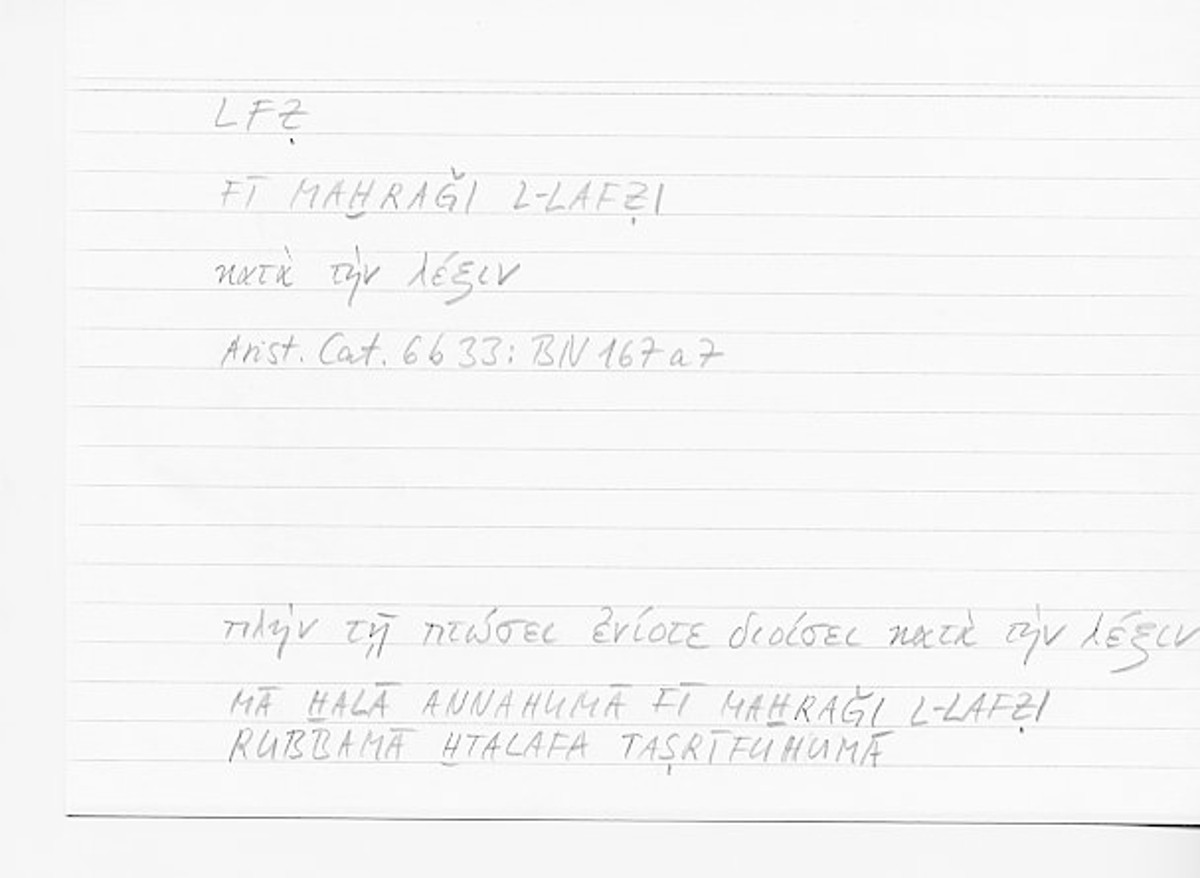 LFẒ
FĪ MAḪRAǦI L-LAFẒI
κατὰ τὴν λέξιν
Arist. Cat. 6b33: BN 167a7
πλὴν τῇ πτώσει ἐνίοτε διοίσει κατὰ τὴν λέξιν
MĀ ḪALĀ ANNAHUMĀ FĪ MAḪRAǦI L-LAFẒI
RUBBAMĀ ḪTALAFA TAṢRĪFUHUMĀ